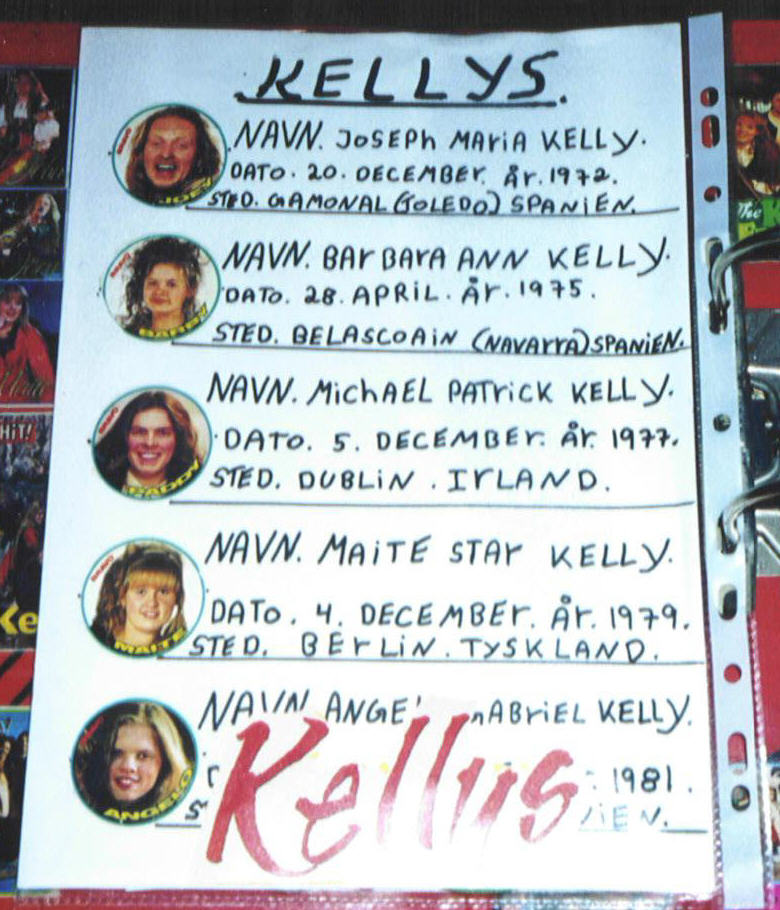 KELLYS.
JOEY
NAVN. JOSEPH MARIA KELLY.
DATO. 20. DECEMBER. ÅR. 1972.
STED. GAMONAL (TOLEDO) SPANIEN.
BRAVO
BARBY
NAVN. BARBARA ANN KELLY.
DATO. 28. APRIL. ÅR. 1975.
STED. BELASCOAIN (NAVARRA) SPANIEN.
BRAVO
PADDY
NAVN. MICHAEL PATRICK KELLY.
DATO. 5. DECEMBER. ÅR. 1977.
STED. DUBLIN. IRLAND.
BRAVO
MAITE
NAVN. MAITE STAR KELLY.
DATO. 4. DECEMBER. ÅR. 1979.
STED. BERLIN. TYSKLAND.
ANGELO
NAVN ANGE KELLY.
1981.
Kellys
The
HIT!
Ke